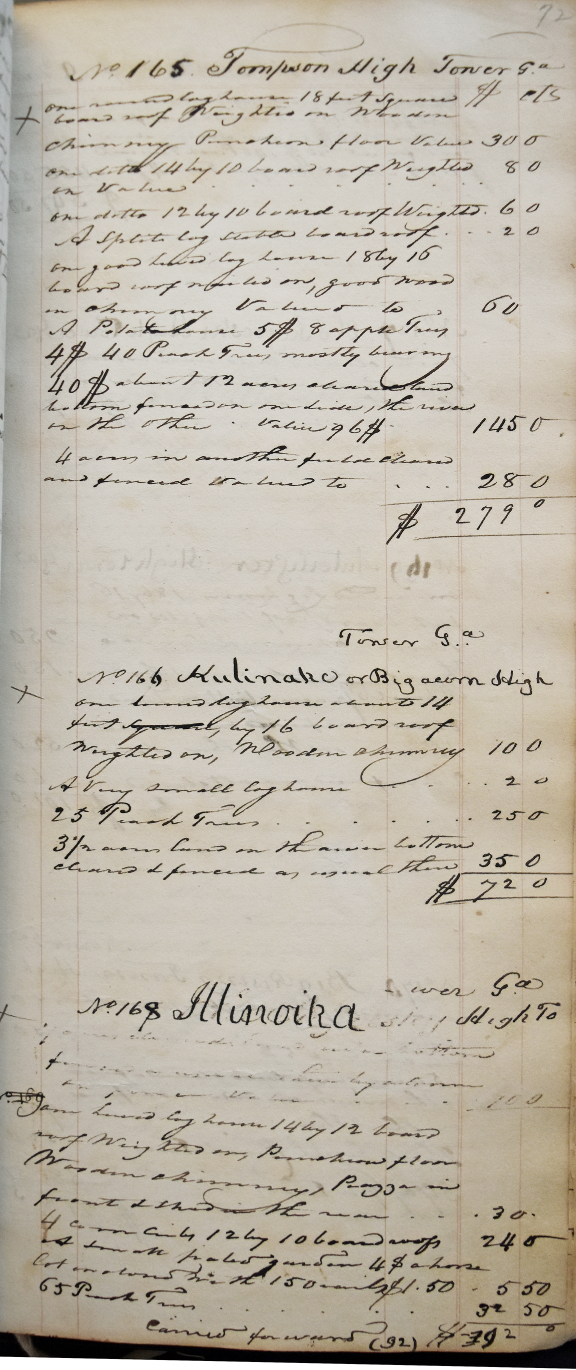 92
No 165. Tompson High Tower Ga
one round log house 18 feet Square $ cts
board roof Weighted on Wooden
chimney Puncheon floor Value 30 0
one ditto 14 by 10 board roof Weighted 8 0
on Value
one ditto 12 by 10 board roof Weighted 6 0
A Split log stable board roof 2 0
one good hewed log house 18 by 16
board roof nailed on, good wood
en chimney Valued to 60
A Potatoe house 5$ 8 apple Trees
4$ 40 Peach Trees mostly bearing
40$ about 12 acres cleared land
bottom fenced on one side, the river
on the other Value 96$ 145 0
4 acres in another field cleared
and fenced Valued to 28 0
$ 279 0
Tower Ga
No 166 Kulinake or Big acorn High
one hewed log house about 14
feet Square, by 16 board roof
Weighted on, Wooden chimney 10 0
A Very small log house 2 0
25 Peach Trees 25 0
3 1/2 acres land on the river bottom
cleared & fenced as usual there 35 0
$ 72 0
Tower Ga
No 168 Illinoika High To
bottom
one hewed log house 14 by 12 board
roof Weighted on, Puncheon floor
Wooden chimney, Piazza in
front & shed in the rear 30
4 corn cribs 12 by 10 board roofs 24 0
A small paled garden 4$ a horse
lot enclosed with 150 rails $1.50 5 50
65 Peach Trees 32 50
Carried forward (92) $ 92 0